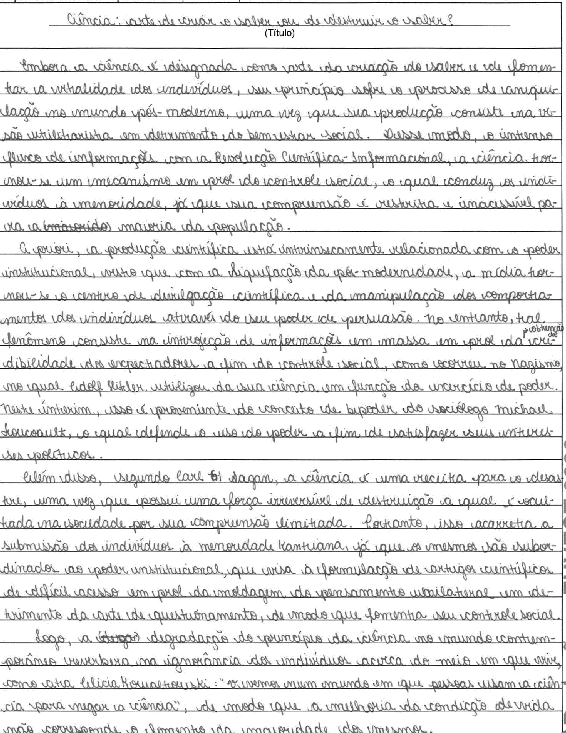 Ciência: arte de criar o saber ou de destruir o saber?
(Título)
Embora a ciência é designada como arte da criação do saber e de fomen-
tar a vitalidade dos indivíduos, seu princípio sofre o processo de aniqui-
lação no mundo pós-moderno, uma vez que sua produção consiste na vi-
são utilitarista em detrimento do bem estar social. Desse modo, o intenso
fluxo de informações com a Revolução Científica-Informacional, a ciência tor-
nou-se um mecanismo em prol do controle social, o qual conduz os indi-
víduos à menoridade, já que sua compreensão é restrita e inacessível pa-
ra a maioria da população.
A priori, a produção científica está intrinsecamente relacionada com o poder
institucional, visto que com a liquefação da pós-modernidade, a mídia tor-
nou-se o centro de divulgação científica e da manipulação dos comporta-
mentos dos indivíduos através do seu poder de persuasão. No entanto, tal
fenômeno consiste na introjeção de informações em massa em prol da obtenção da cre-
dibilidade dos expectadores a fim do controle social, como ocorreu no Nazismo,
no qual Adolf Hitler utilizou da sua ciência em função do exercício de poder.
Neste ínterim, isso é proveniente do conceito de bipoder do sociólogo Michael
Foucault, o qual defende o uso do poder a fim de satisfazer seus interes-
ses políticos.
Além disso, segundo Carl Sagan, a ciência é uma receita para o desas-
tre, uma vez que possui uma força irreversível de destruição a qual é ocul-
tada na sociedade por sua compreensão limitada. Portanto, isso acarreta a
submissão dos indivíduos à menoridade kantiana, já que os mesmos são subor-
dinados ao poder institucional, que visa à formulação de artigos científicos
de difícil acesso em prol da moldagem do pensamento unilateral em de-
trimento da arte de questionamento, de modo que fomenta seu controle social.
Logo, a degradação do princípio da ciência no mundo contem-
porâneo reverbera na ignorância dos indivíduos acerca do meio em que vive,
como cita Alicia Kowaltowski: "vivemos num mundo em que pessoas usam a ciên-
cia para negar a ciência", de modo que a melhoria da condição de vida
não corresponde o fomento da maioridade dos mesmos.